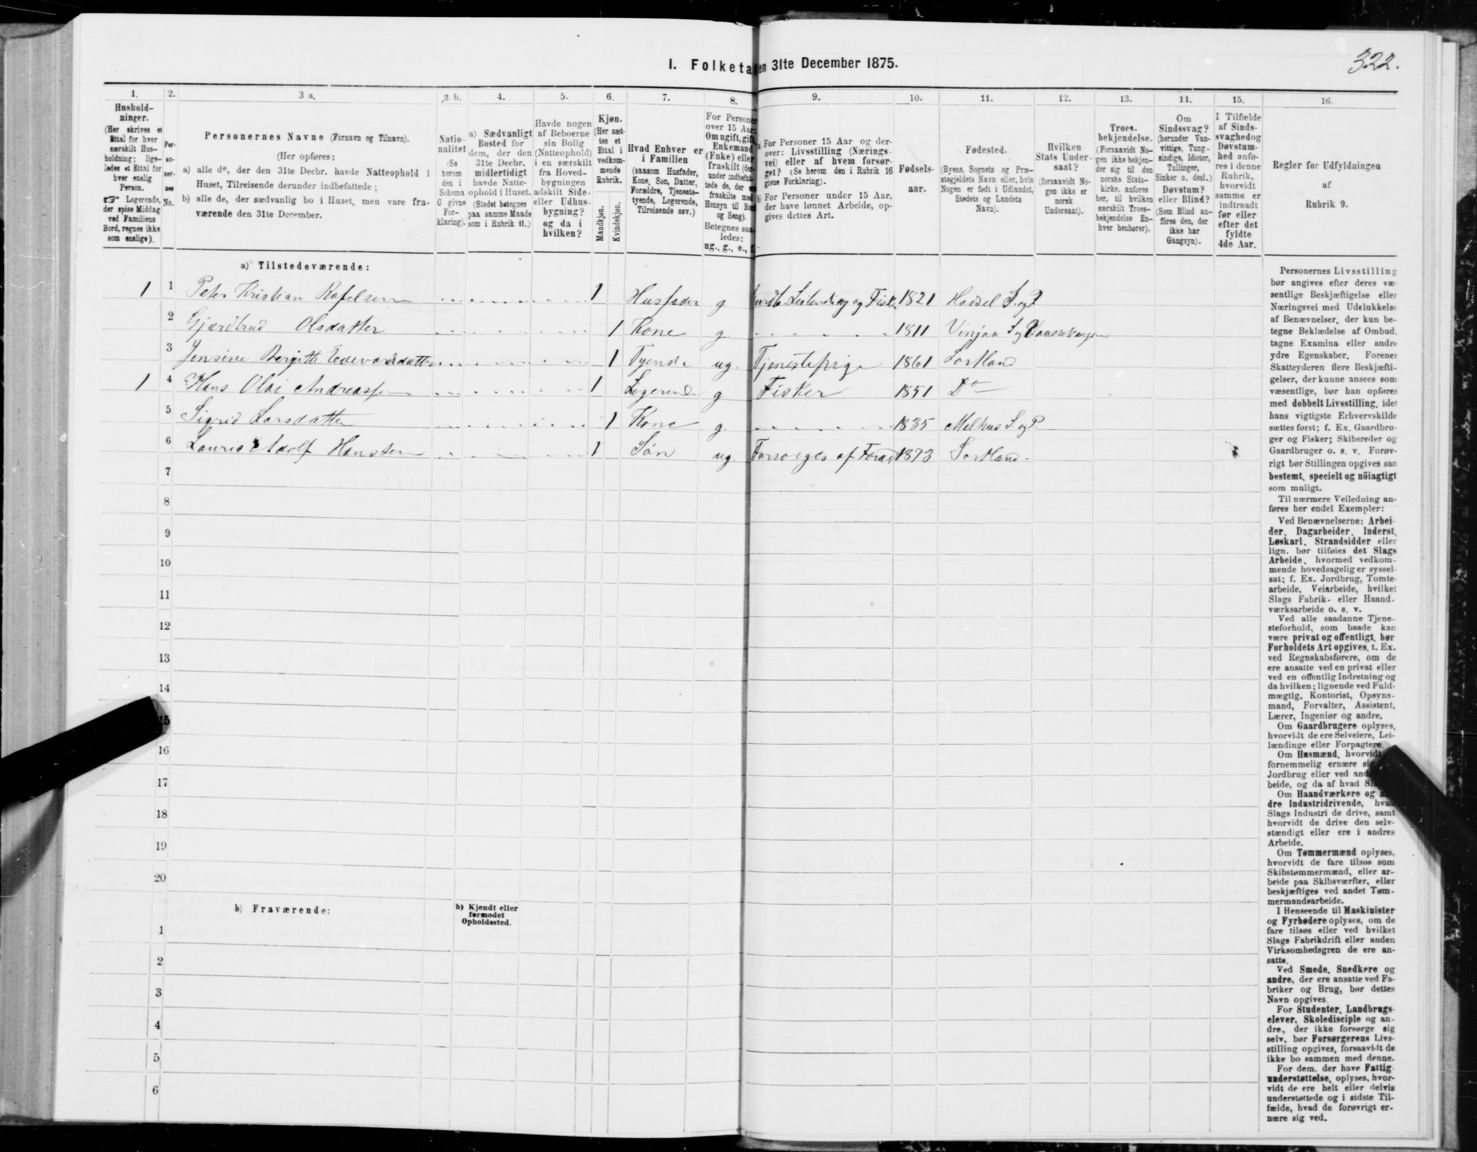 322.
I. Folketa en 31te December 1875.
1.
Hushold-
ninger.
(Her skrives et
Ettal for hver
særskilt Hus-
holdning; lige-
ledes et Ettal for
hver enslig
Person.
Logerende,
der spise Middag
ved Familiens
Bord, regnes ikke
som enslige).
2.
Per-
so-
ner-
nes
No.
3 a.
Personernes Navne (Fornavn og Tilnavn).
(Her opføres:
a) alle de, der den 31te Decbr. havde Natteophold i
Huset, Tilreisende derunder indbefattede;
b) alle de, der sædvanlig bo i Huset, men vare fra-
værende den 31te December.
3 b.
Natio-
nalitet
(Se
herom
den i
Schema
6 givne
For-
klaring).
4.
a) Sædvanligt
Bosted for
dem, der den
31te Decbr.
midlertidigt
havde Natte-
ophold i Huset.
(Stedet betegnes
paa samme Maade
som i Rubrik 11.)
5.
Havde nogen
af Beboerne
sin Bolig
(Natteophold)
i en særskilt
fra Hoved-
bygningen
adskilt Side-
eller Udhus-
bygning?
og da i
hvilken?
6.
Kjøn.
(Her sæt-
tes et
Ettal i
vedkom-
mende
Rubrik.
Mandkjøn.
Kvindekjøn.
7.
Hvad Enhver er
i Familien
(saasom Husfader,
Kone, Søn, Datter,
Forældre, Tjeneste-
tyende, Logerende,
Tilreisende osv.)
8.
For Person
over 15 Aar
Om ugift, gift
Enkemand
(Enke) eller
fraskilt
ug., g., e.,
9.
For Personer 15 Aar og der-
over: Livsstilling (Nærings-
vei) eller af hvem forsør-
get? (Se herom den i Rubrik 16
givne Forklaring).
For Personer under 15 Aar,
der have lønnet Arbeide, op-
gives dettes Art.
10.
Fødsels-
aar.
11.
Fødested.
(Byens, Sognets og Præ-
stegjeldets Navn eller, hvis
Nogen er født i Udlandet,
Stedets og Landets
Navn).
12.
Hvilken
Stats Under-
saat?
(forsaavidt No-
gen ikke er
norsk
Undersaat).
13.
Troes-
bekjendelse.
(Forsaavidt No-
gen ikke bekjen-
der sig til den
norske Stats-
kirke, anføres
her, til hvilken
særskilt Troes-
bekjendelse En-
hver henhører).
14.
Om
Sindssvag?
(herunder Van-
vittige, Tung-
sindige, Idioter,
Tullinger,
Sinker o. desl.)
Døvstum?
eller Blind?
(Som Blind an-
føres den, der
ikke har
Gangsyn).
15.
I Tilfælde
af Sinds-
svaghed og
Døvstum-
hed anfø-
res i denne
Rubrik,
hvorvidt
samme er
indtraadt
før eller
efter det
fyldte
4de Aar.
16.
Regler før Udfyldningen
af
Rubrik 9.
a) Tilstedeværende:
1 1 Peter Kristian Rafelsen 1 Husfader g og Fisk. 1821 Hadsel S. og P.
2 Gjærtrud Olsdatter 1 Kone g. 1811 Vinjaa S og P
3 Jensine Bergitte Edevardsdatter 1 Tyende ug. Tjenestepige 1861 Sortland
1 4 Hans Olai Andreassen 1 Logerende g Fisker 1851 Do
5 Sigrid Larsdatter 1 Kone g. 1835 Melhus S og P
6 Laurits Adolf Hansen 1 Søn ug Forsørges af Foræld 1873 Sortland.
7
8
9
10
11
12
13
14
15
16
17
18
19
20
b) Fraværende:
b) Kjendt eller
formodet
Opholdssted.
1
2
3
4
5
6
Personernes Livsstilling
bør angives efter deres væ-
sentlige Beskjæftigelse eller
Næringsvei med Udelukkelse
af Benævnelser, der kun be-
tegne Beklædelse af Ombud,
tagne Examina eller andre
ydre Egenskaber. Forener
Skatteyderen flere Beskjæfti-
gelser, der kunne ansees som
væsentlige, bør han opføres
med dobbelt Livsstilling, idet
hans vigtigste Erhvervskilde
sættes først; f. Ex. Gaardbru-
ger og Fisker; Skibsreder og
Gaardbruger o. s. v. Forøv-
rigt bør Stillingen opgives saa
bestemt, specielt og nøiagtigt
som muligt.
Til nærmere Veiledning an-
føres her endel Exempler:
Ved Benævnelserne: Arbei-
der, Dagarbeider, Inderst,
Løskarl, Strandsidder eller
lign. bør tilføies det Slags
Arbeide, hvormed vedkom-
mende hovedsagelig er syssel-
sat; f. Ex. Jordbrug, Tomte-
arbeide, Veiarbeide, hvilket
Slags Fabrik- eller Haand-
værksarbeide o. s. v.
Ved alle saadanne Tjene-
steforhold, som baade kan
være privat og offentligt, bør
Forholdets Art opgives, t. Ex.
ved Regnskabsførere, om de
ere ansatte ved en privat eller
ved en offentlig Indretning og
da hvilken; lignende ved Fuld-
mægtig, Kontorist, Opsyns-
mand, Forvalter, Assistent,
Lærer, Ingeniør og andre.
Om Gaardbrugere oplyses,
hvorvidt de ere Selveiere, Lei-
lændinge eller Forpagtere.
Om Husmænd, hvorvidt
fornemmelig ernære sig
Jordbrug eller ved
beide, og da af hvad
Om Haandværkere og
dre Industridrivende,
Slags Industri de drive, samt
hvorvidt de drive den selv-
stændigt eller ere i andres
Arbeide.
Om Tømmermænd oplyses,
hvorvidt de fare tilsøs som
Skibstømmermænd, eller ar-
beide paa Skibsværfter, eller
beskjæftiges ved andet Tøm-
mermandsarbeide.
I Henseende til Maskinister
og Fyrbødere oplyses, om de
fare tilsøs eller ved hvilket
Slags Fabrikdrift eller anden
Virksomhedsgren de ere an-
satte.
Ved Smede, Snedkere og
andre, der ere ansatte ved Fa-
briker og Brug, bør dettes
Navn opgives.
For Studenter, Landbrugs-
elever, Skoledisciple og an-
dre, der ikke forsørge sig
selv, bør Forsørgerens Livs-
stilling opgives, forsaavidt de
ikke bo sammen med denne.
For dem, der have Fattig-
understøttelse, oplyses, hvor-
vidt de ere helt eller delvis
understøttede og i sidste Til-
fælde, hvad de forøvrigt er-
nære sig ved.